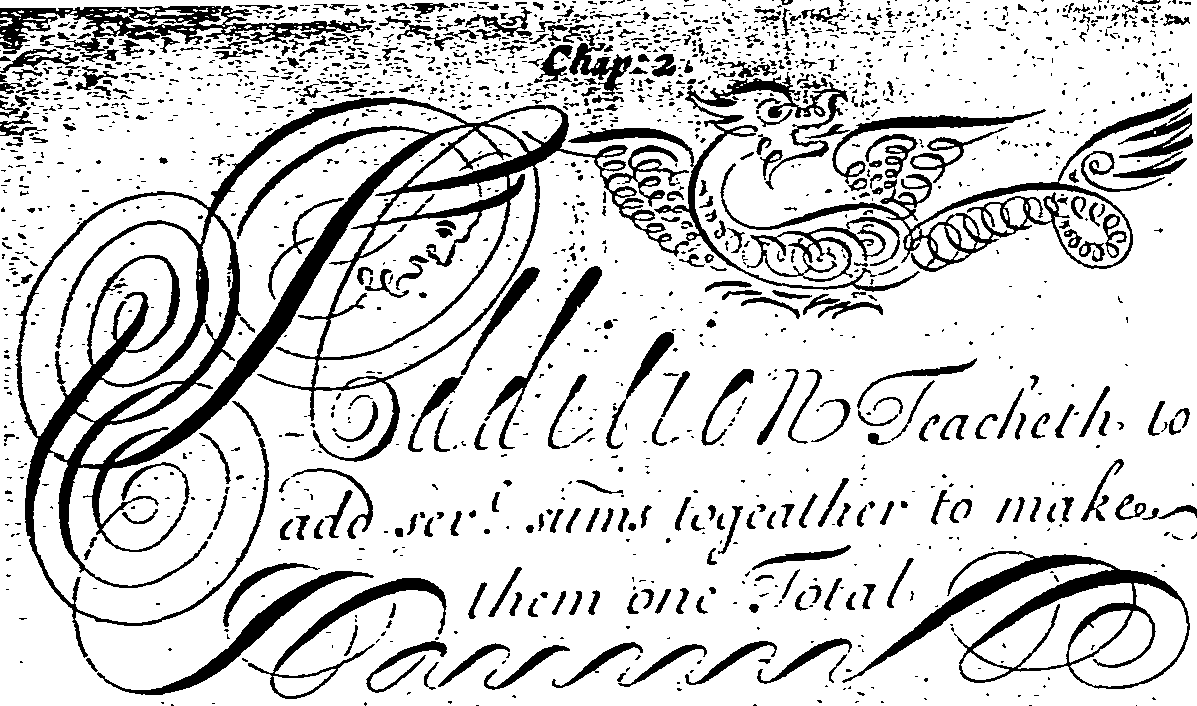 Chap: 2.
Addition Teacheth to
add sev.l sums togeather to make
them one Total